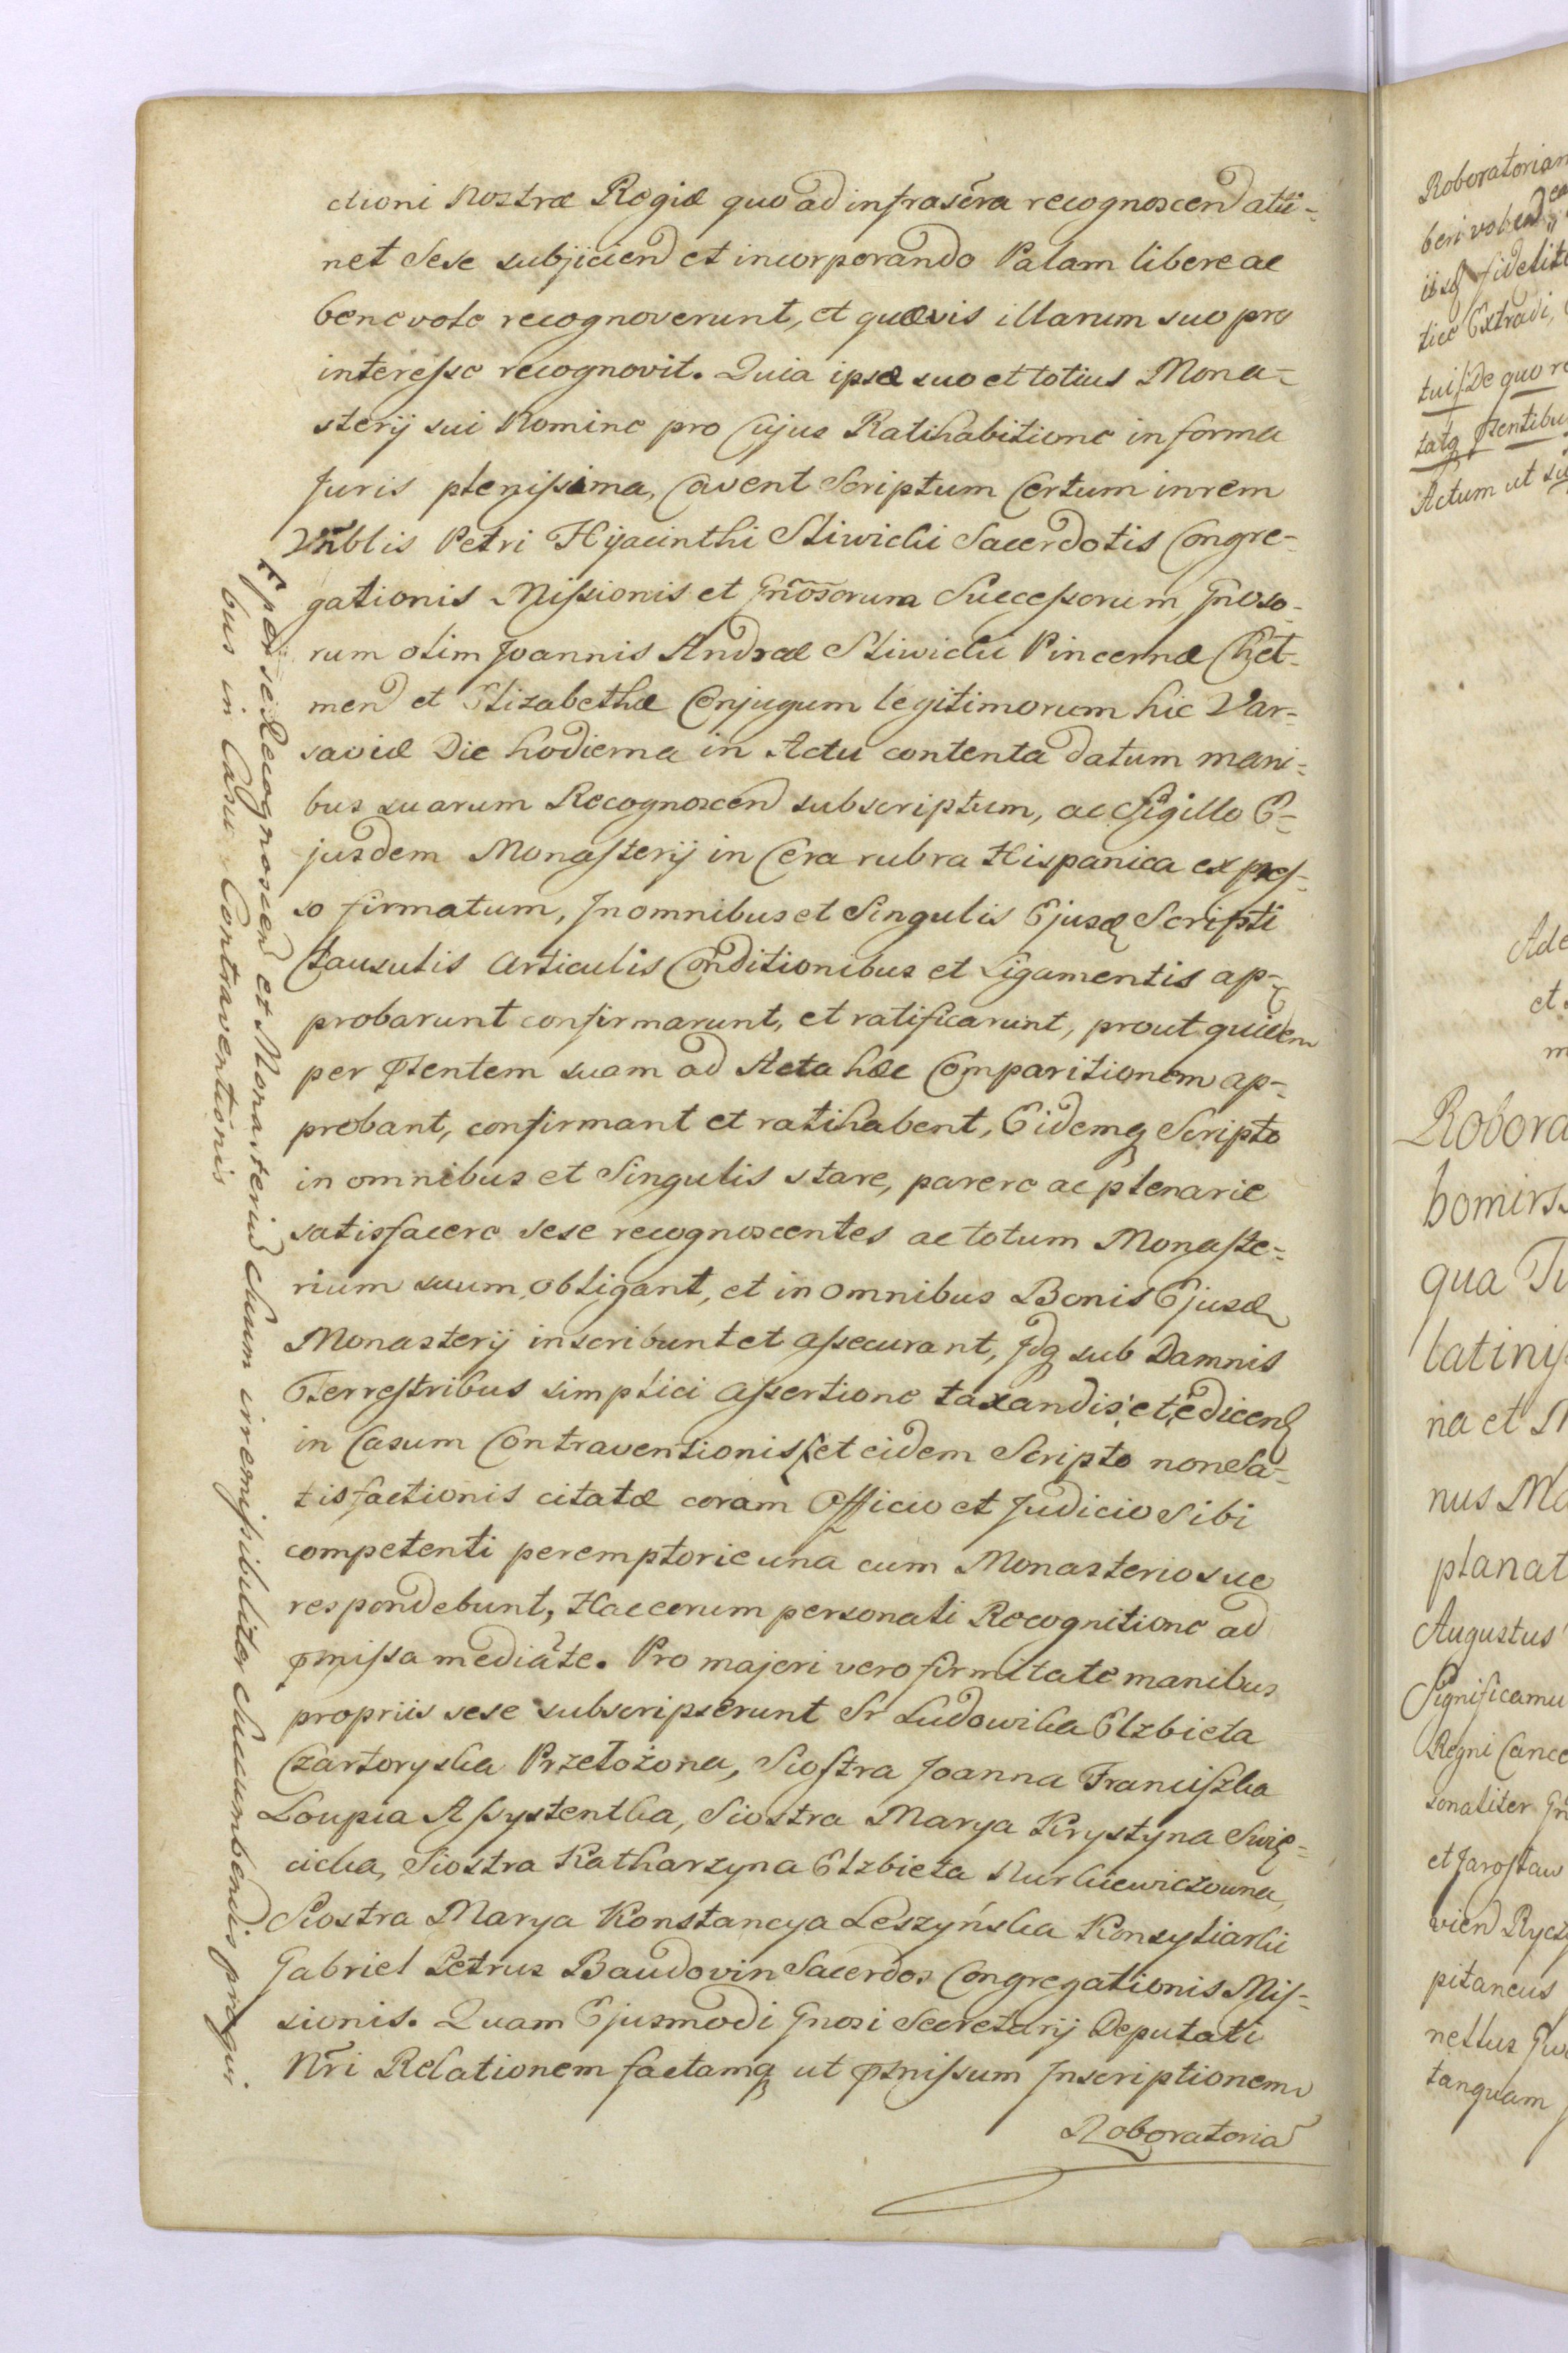 ctioni nostræ Regiæ quo ad infrascra recognoscend atti-
net Sese subjiciend et incorporando Palam libere ac
benevole recognoverunt, et quævis illarum suo pro
interesse recognovit. Quia ipsæ suo et totius Mona-
sterij sui Nomine pro Cujus Ratihabitione in forma
Juris plenissima, Cavent Scriptum Certum in rem
Vnblis Petri Hyacinthi Sliwicki Sacerdotis Congre-
gationis Missionis et Gnososorum Successorum Gnoso-
rum olim Joannis Andreæ Sliwicki Pincernæ Chel-
men et Elizabethæ Conjugum legitimorum hic Var-
saviæ Die hodierna in Actu contenta datum mani-
bus suarum Recognoscen subscriptum, ac Sigillo E-
jusdem Monasterij in Cera rubra Hispanica expres-
so firmatum, Jn omnibus et Singulis Ejusd Scripti
Clausulis Articulis Conditionibus et Ligamentis ap-
probarunt confirmarunt, et ratificarunt, prout quidem
per pntentem suam ad Acta hæc Comparitionem ap-
probant, confirmant et ratihabent, Eidemq Scripto
in omnibus et Singulis stare, parere ac plenarie
satisfacere sese recognoscentes ac totum Monaste-
rium suum obligant, et in omnibus Bonis Ejusd
Monasterij inscribunt et assecurant, Jdq sub Damnis
Terrestribus simplici assertione taxandis et edicend
in Casum Contraventionis et eidem Scripto non Sa-
tisfactionis citatæ coram Officio et Judicio Sibi
competenti peremptorie una cum Monasterio suo
respondebunt, Hac earum personali Recognitione ad
pmissa mediate. Pro majori vero firmitate manibus
propriis sese subscripserunt Sr Ludowika Elzbieta
Czartoryska Przełożona, Siostra Joanna Franciszka
Loupia Assystentka, Siostra Marya Krystyna Swię-
cicka, Siostra Katharzyna Elzbieta Kurkiewiczowna,
Siostra Marya Konstancya Leszyńska Konsyliarki
Gabriel Petrus Baudovin Sacerdos Congregationis Mis-
sionis. Quam Ejusmodi Gnosi Secretarij Deputati
Nri Relationem factamq ut pmissum Jnscriptionem
Roboratoria
per se Recognoscen et Monasteriu Suum irremissibiliter Succumbendis præqui
bus in Casu Contraventionis
Roboratoriam
beri
iisq fidelit
tice Extradi,
tuis De quo re
tatq pntentibu
Actum ut su
Ade
et
m
Robora
bomirs
qua Ti
latinis
na et M
nus Ma
planat
Augustus
Significamu
Regni Cance
sonaliter Gn
et Jarostaw
vien Ryczy
pitaneus
nellus Gw
tanquam